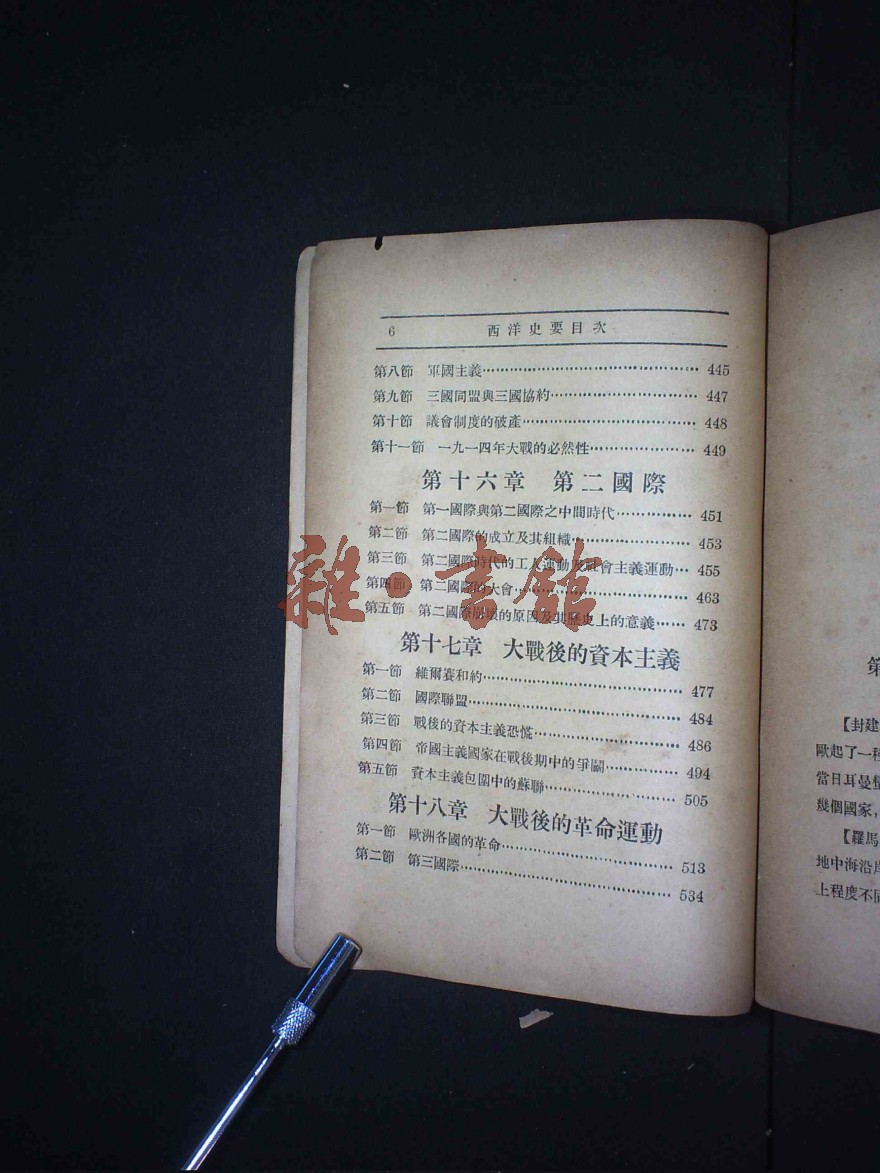 6 西洋史要目次
第八節 軍國主義…………………………………… 445
第九節 三國同盟與三國協約…………………………… 447
第十節 議會制度的破產………………………………… 448
第十一節 一九一四年大戰的必然性…………………… 449
第十六章 第二國際
第一節 第一國際與第二國際之中間時代…………… 451
第二節 第二國際的成立及其組織…………………… 453
第三節 第二國際時代的工人運動及社會主義運動… 455
第四節 第二國際的大會……………………………… 463
第五節 第二國際崩壞的原因及其歷史上的意義…… 473
第十七章 大戰後的資本主義
第一節 維爾賽和約…………………………………… 477
第二節 國際聯盟……………………………………… 484
第三節 戰後的資本主義恐慌………………………… 486
第四節 帝國主義國家在戰後期中的爭鬭…………… 494
第五節 資本主義包圍中的蘇聯……………………… 505
第十八章 大戰後的革命運動
第一節 歐洲各國的革命……………………………… 513
第二節 第三國際……………………………………… 534
雜·書館
第
【封建
歐起了一種
當日耳曼
幾個國家，
【羅馬
地中海沿岸
上程度不同